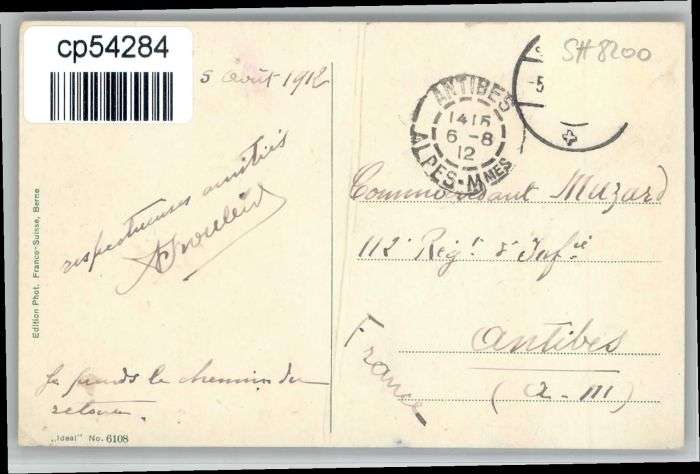 cp54284
SH8200
5 août 1912
ANTIBES
1415
6 -8
12
ALPES-MMES
-5
respectueuses amitiés
Commandant Mazard
112e Régt d'Infie
Antibes
(a-m)
France
Je prends le chemin du
retour.
Edition Phot. France-Suisse, Berne
„Ideal" No. 6108